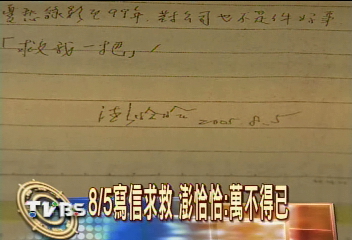 憂愁錄影至99年.對公司也不是件好事
「求救我一把」
2005.8.5
TVBS
8/5寫信求救 澎恰恰:萬不得已